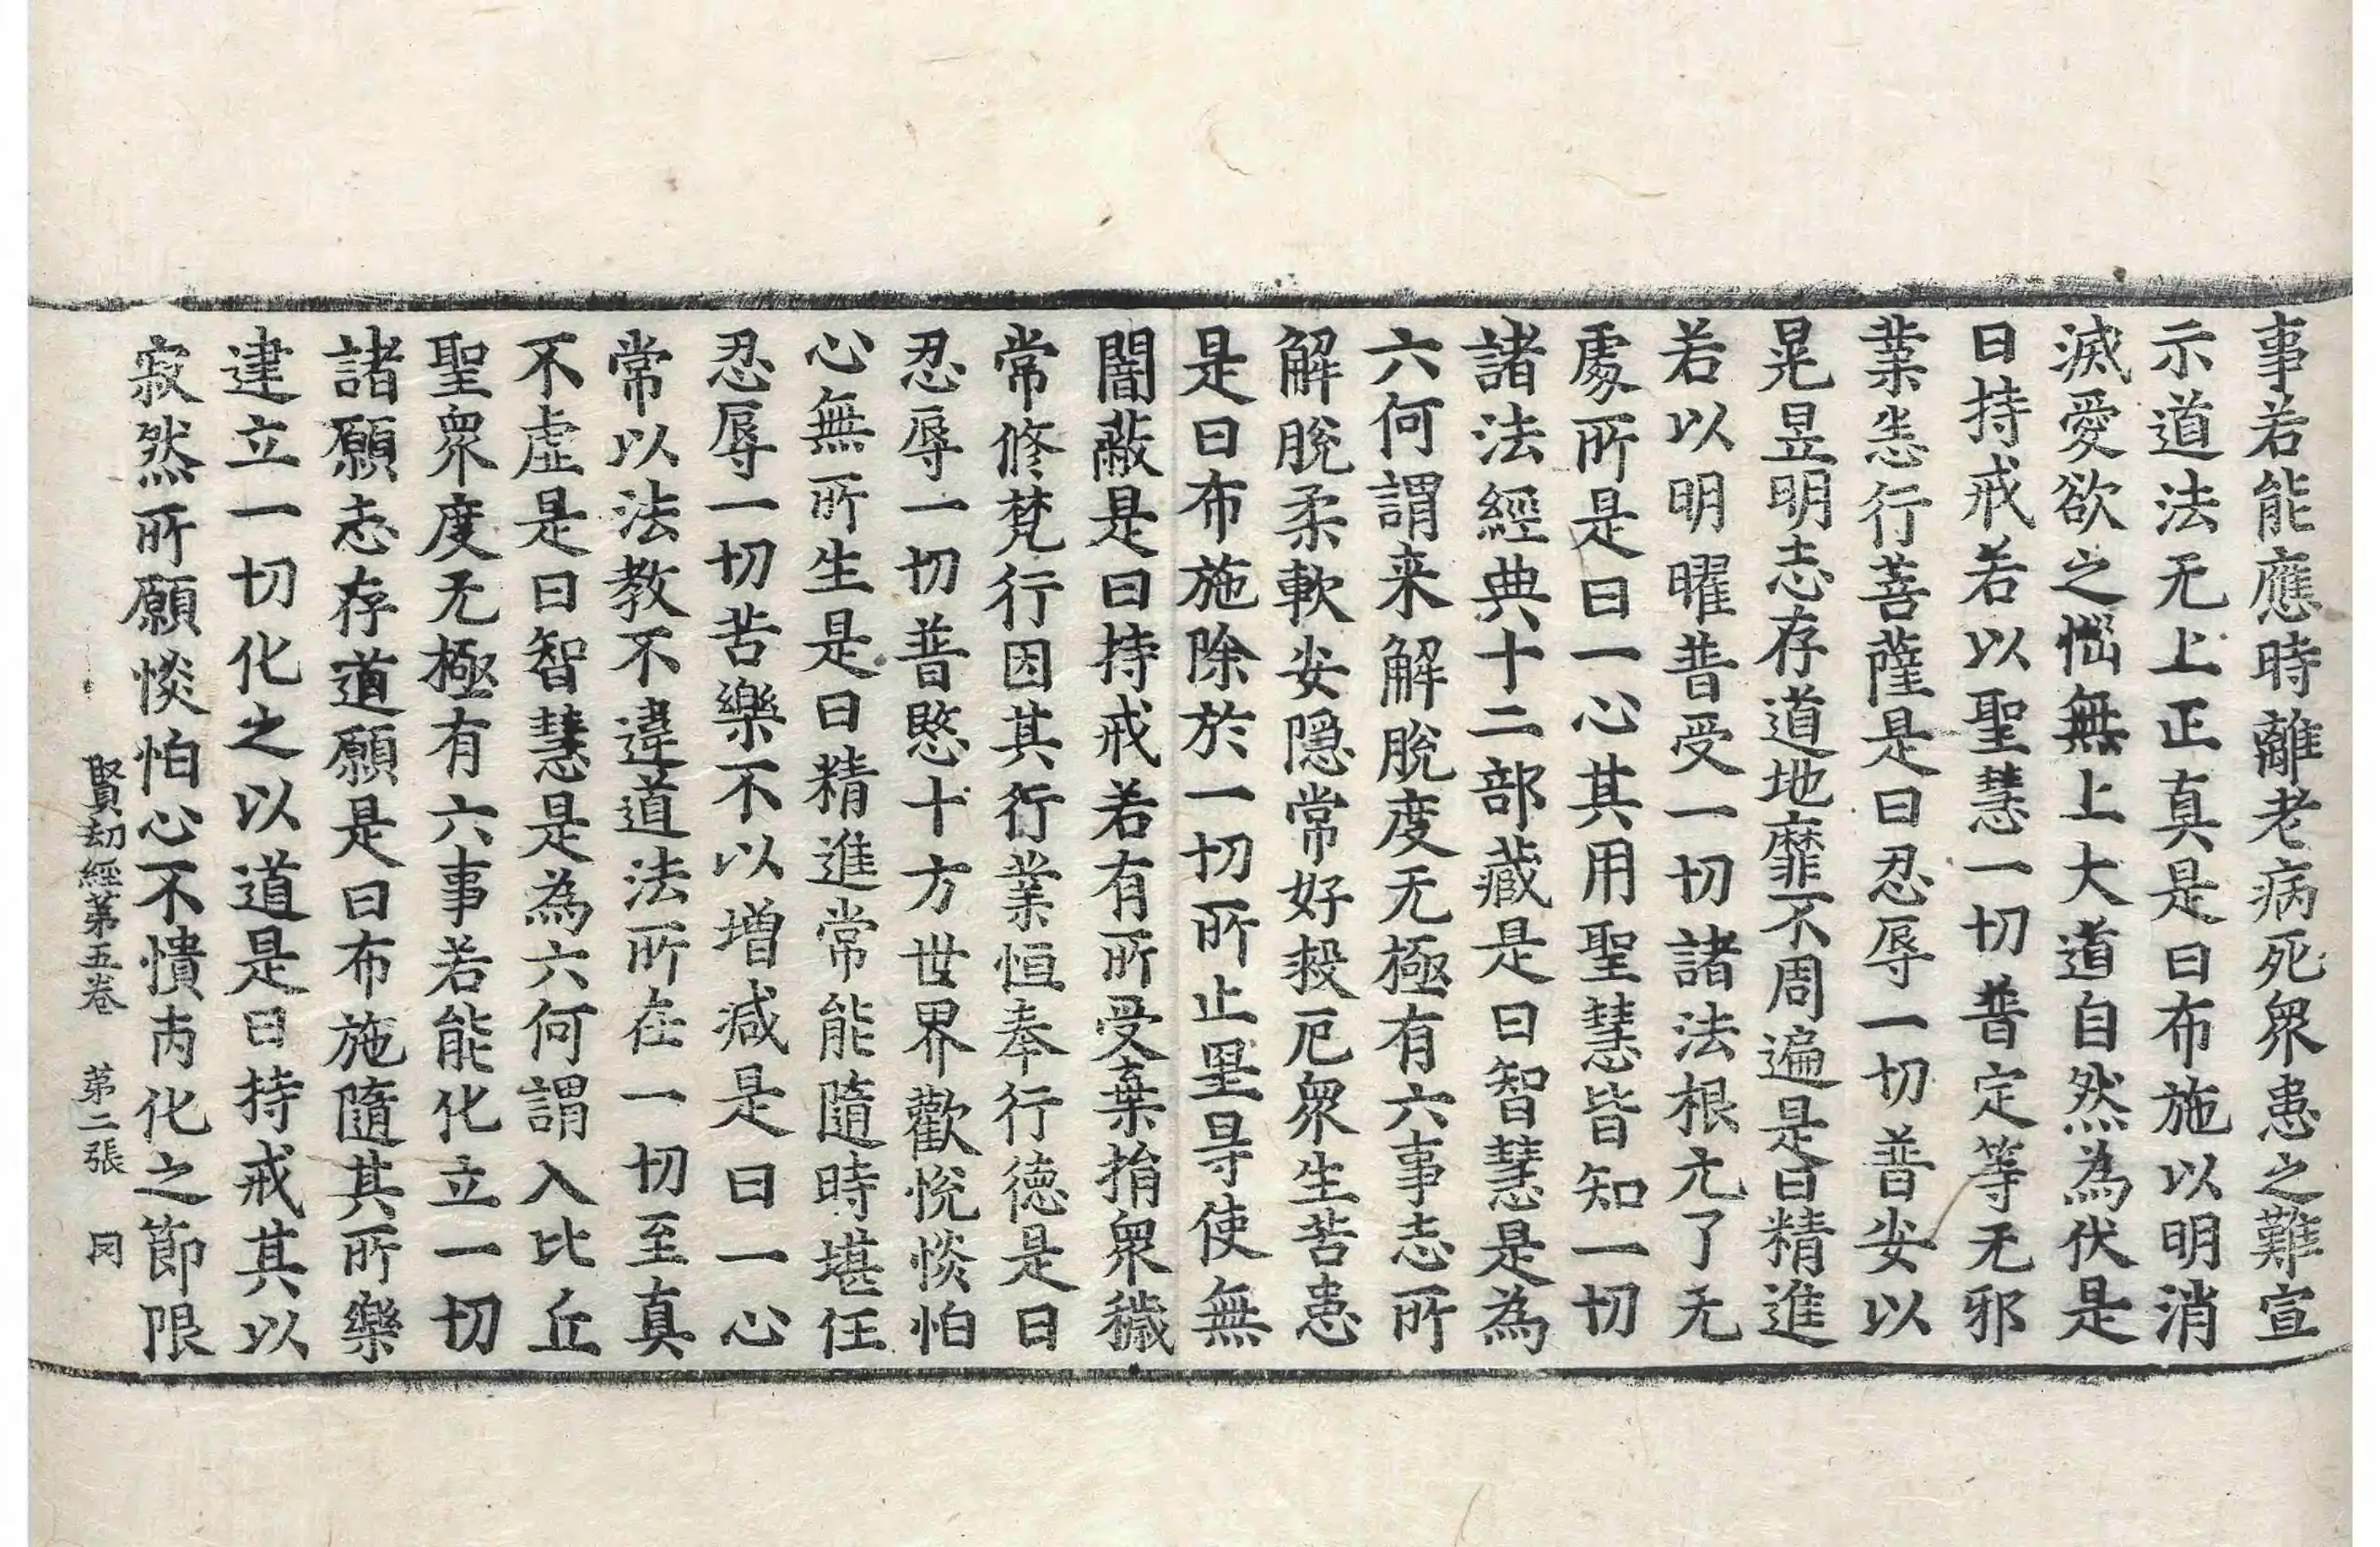 事若能應時離老病死衆患之難宣
示道法无上正真是曰布施以明消
滅愛欲之惱無上大道自然為伏是
曰持戒若以聖慧一切普定等无邪
業恙行菩薩是曰忍辱一切普安以
晃昱明志存道地靡不周遍是曰精進
若以明曜普受一切諸法根元了无
處所是曰一心其用聖慧皆知一切
諸法經典十二部藏是曰智慧是為
六何謂来解脫度无極有六事志所
解脫柔軟安隱常好殺厄衆生苦患
是曰布施除於一切所止里㝵使無
闇蔽是曰持戒若有所受棄捐衆穢
常修梵行因其行業恒奉行德是曰
忍辱一切普愍十方世界歡悅惔怕
心無所生是曰精進常能隨時堪任
忍辱一切苦樂不以增減是曰一心
常以法教不違道法所在一切至真
不虛是曰智慧是為六何謂入比丘
聖衆度无極有六事若能化立一切
諸願志存道願是曰布施隨其所樂
建立一切化之以道是曰持戒其以
寂然所願惔怕心不憒丙化之節限
賢劫經第五卷 第二張 冈